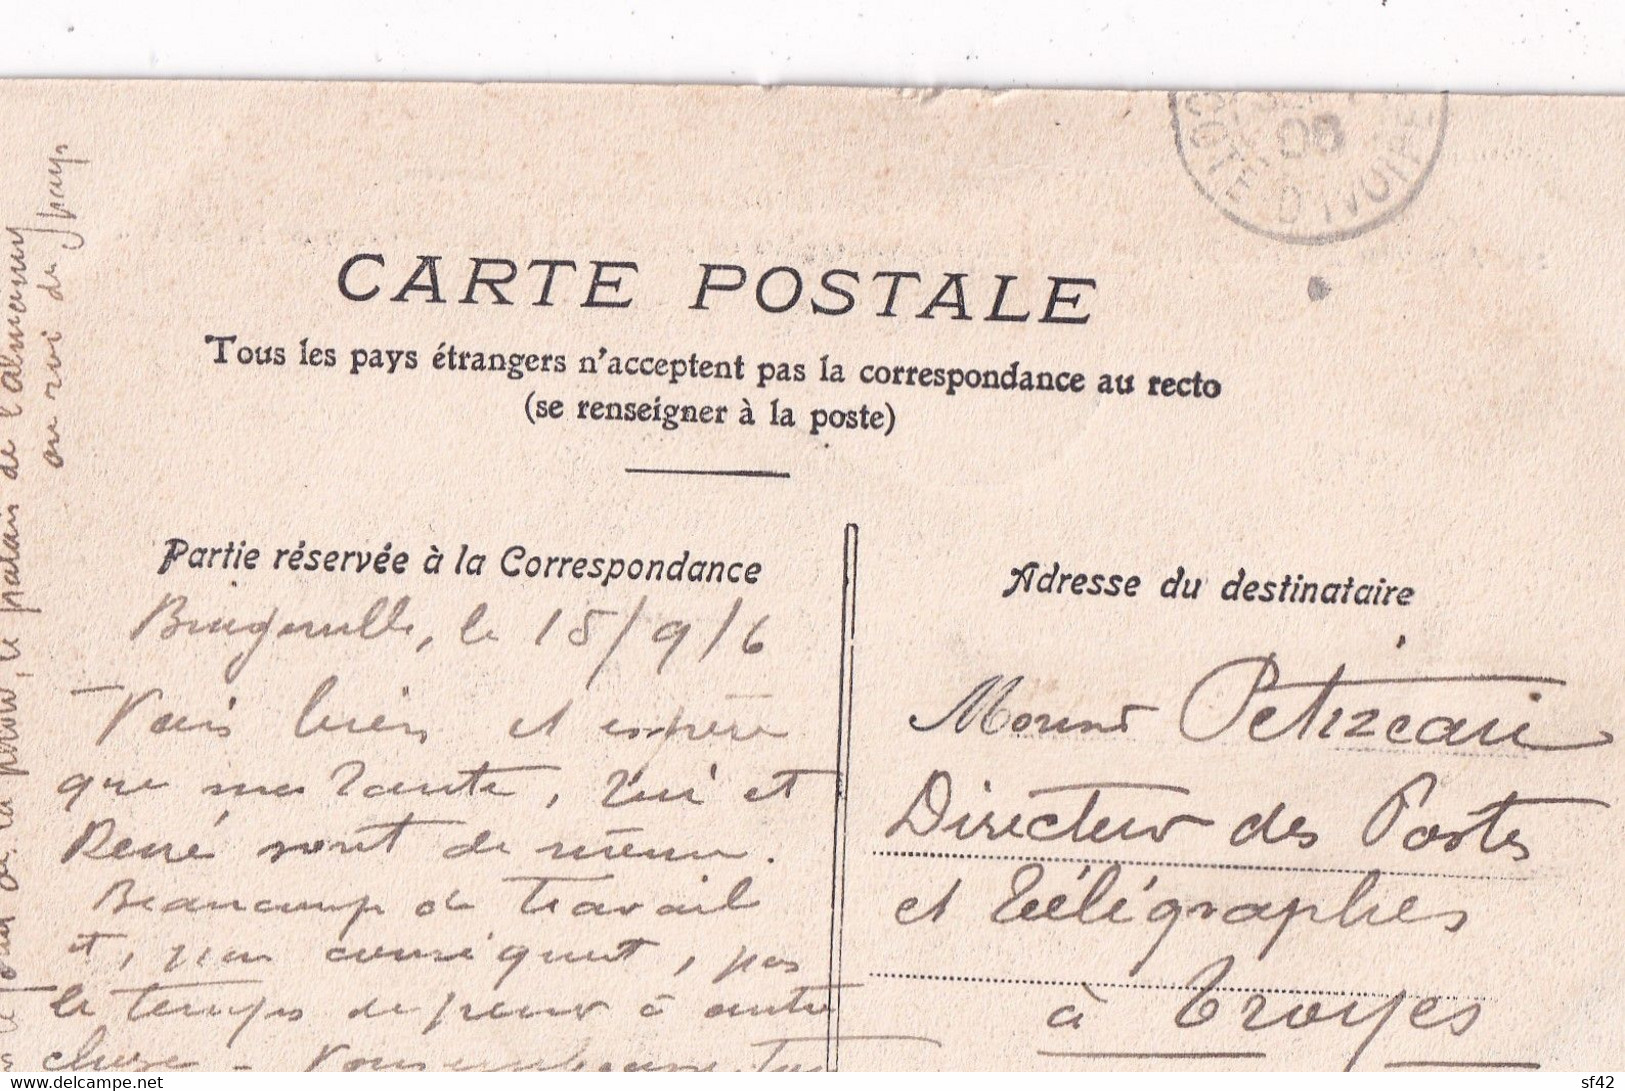 COTE D'IVOIRE
06
CARTE POSTALE
Tous les pays étrangers n'acceptent pas la correspondance au recto
(se renseigner à la poste)
Partie réservée à la Correspondance
Bingerville, le 15/9/6
Vais bien et espère
que ma tante, lui et
René sont de même.
Beaucoup de travail
et, par conséquent, pas
le temps de penser à autre
chose - Vous embrasse
Adresse du destinataire
Petitjean
Directeur des Postes
et Télégraphes
à Troyes
le palais de l'almamy
ou roi du pays.
delcampe.net
sf42